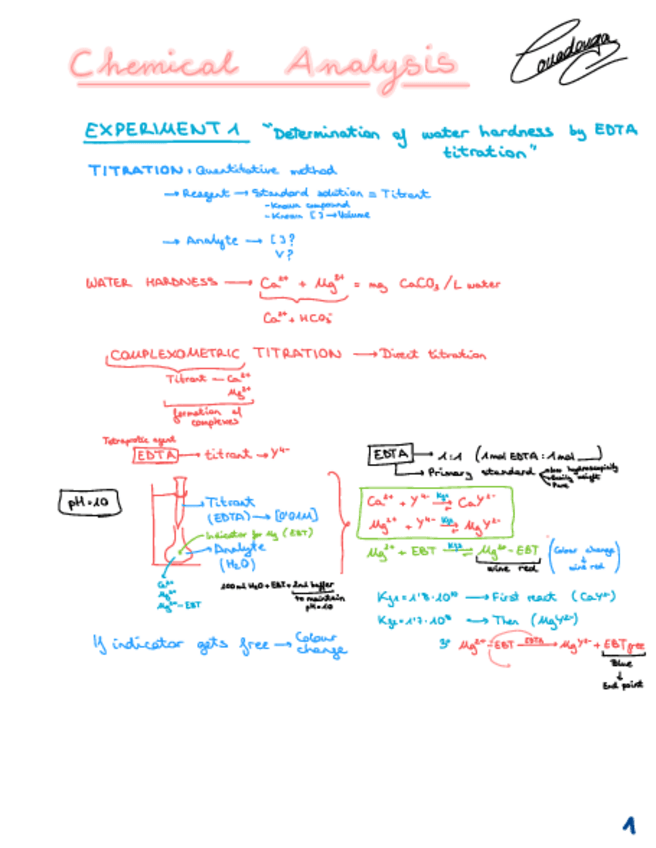 Chemical Analysis
EXPERIMENT 1 "Determination of water hardness by EDTA
titration"
TITRATION: Quantitative method
→ Reagent → Standard solution = Titrant
- Known compound
- Known [ ] → Volume
→ Analyte → [ ]?
V?
WATER HARDNESS → Ca²⁺ + Mg²⁺ = mg CaCO₃/L water
Ca²⁺ + HCO₃⁻
COMPLEXOMETRIC TITRATION → Direct titration
Titrant - Ca²⁺
Mg²⁺
formation of
complexes
Tetraprotic agent
EDTA → titrant → Y⁴⁻
pH=10
Titrant
(EDTA) → [0'01M]
Indicator for Mg (EBT)
Analyte
(H₂O)
Ca²⁺
Mg²⁺
Mg²⁺-EBT
100 mL H₂O + EBT + 2ml buffer
to maintain
pH=10
If indicator gets free → Colour
change
EDTA → 1:1 (1mol EDTA : 1mol __)
→ Primary standard
Pure
Ca²⁺ + Y⁴⁻ ⇌ CaY²⁻
Mg²⁺ + Y⁴⁻ ⇌ MgY²⁻
Mg²⁺ + EBT ⇌ Mg²⁺-EBT (Colour change
wine red
wine red)
Kf1 = 1'8·10¹⁰ → First react (CaY²⁻)
Kf2 = 1'7·10⁸ → Then (MgY²⁻)
3º Mg²⁺-EBT EDTA→ MgY²⁻ + EBT free
Blue
↓
End point
1